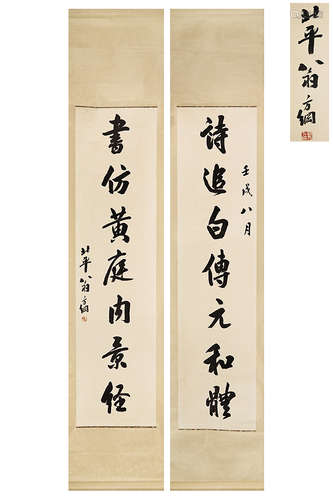 詩追白傅元和體
壬戌八月
書仿黃庭内景经
北平翁方綱
北平翁方綱